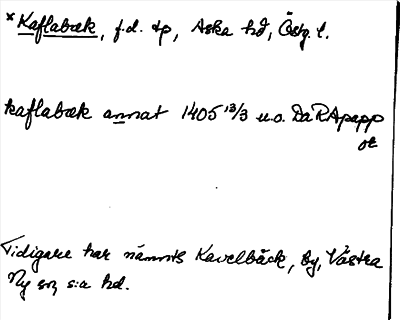 * Kaflabæk, f.d. tp, Aska hd, Östg. l.
kaflabæk annat 1405 13/3 u.o. DaRApapp
or
Tidigare har nämnts Kavelbäck, by, Västra
Ny sn, s:a hd.